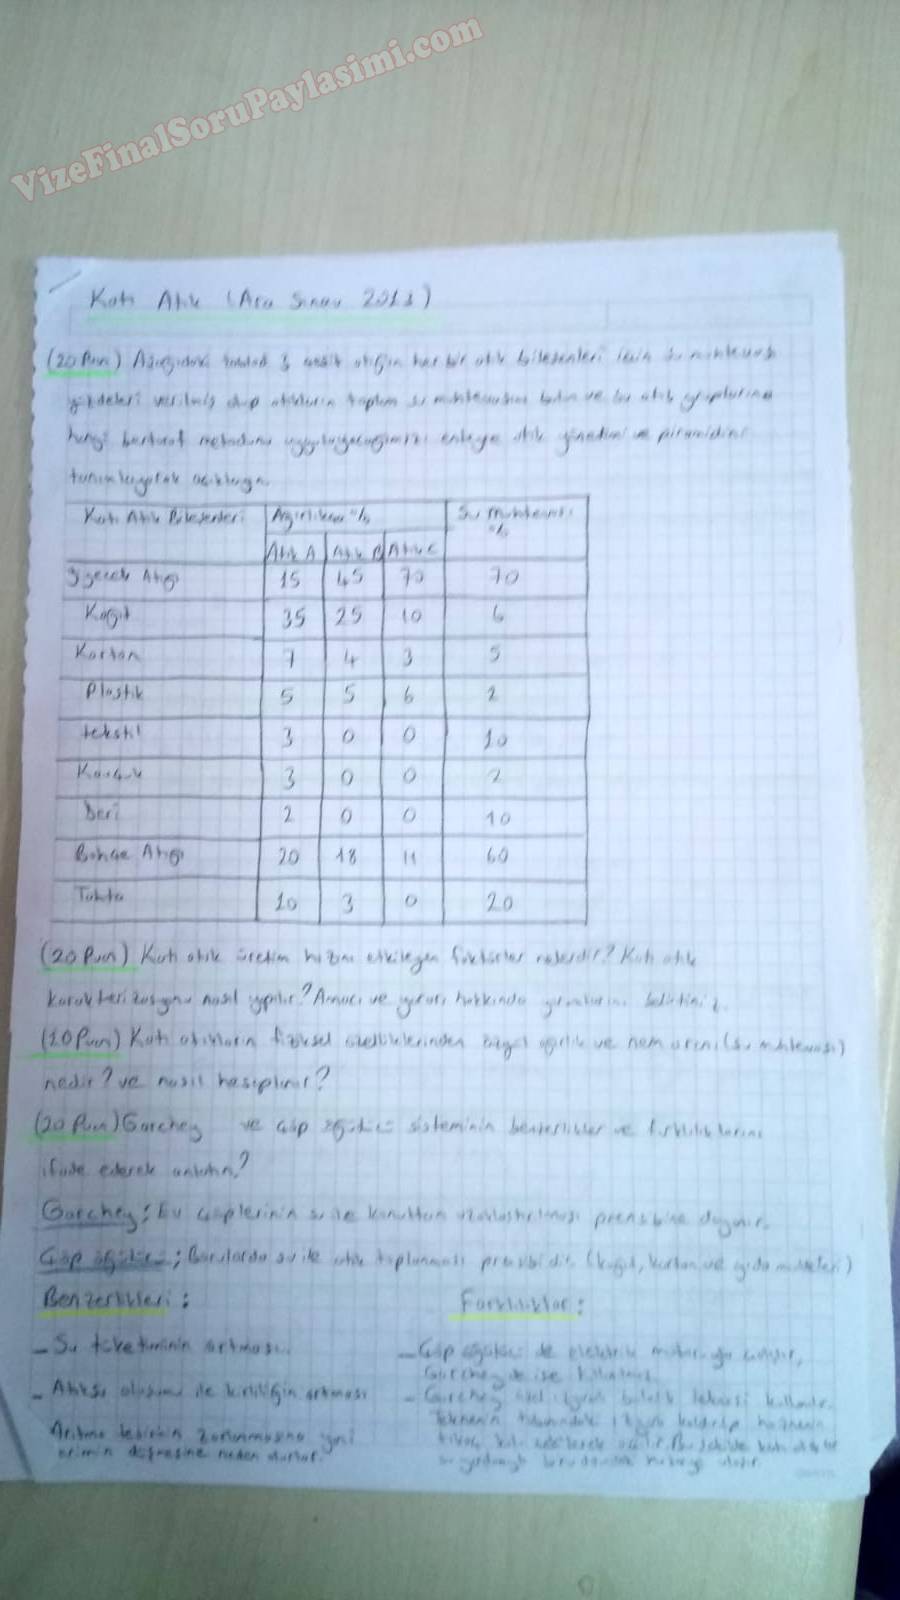 VizeFinalSoruPaylasimi.com
Katı Atık (Ara Sınav 2013)
(20 Puan) Aşağıdaki 3 atığın her bir atık bileşenleri için su muhtevası
yüzdeleri verilmiş olup atıkların toplam su muhtevasını bulun ve bu atık gruplarına
hangi bertaraf metodunu atık yönetimi ve piramidini
tanımlayarak açıklayın.
Katı Atık Bileşenleri Ağırlıkça % Su Muhtevası %
Atık A Atık B Atık C
Yiyecek Atığı 15 45 70 70
Kağıt 35 25 10 6
Karton 7 4 3 5
Plastik 5 5 6 2
tekstil 3 0 0 10
Kauçuk 3 0 0 2
Deri 2 0 0 10
Bahçe Atığı 20 18 11 60
Tahta 10 3 0 20
(20 Puan) Katı atık üretim hızını etkileyen faktörler nelerdir? Katı atık
karakterizasyonu nasıl yapılır? Amacı ve yararı hakkında yorumlarını belirtiniz.
(10 Puan) Katı atıkların fiziksel özelliklerinden özgül ağırlık ve nem oranı (su muhtevası)
nedir? ve nasıl hesaplanır?
(20 Puan) Garchey ve Çöp öğütücü sisteminin benzerlikler ve farklılıklarını
ifade ederek anlatın?
Garchey; Ev çöplerinin su ile konuttan uzaklaştırılması prensibine dayanır.
Çöp öğütücü; Borularda su ile atık toplanması prensibidir. (kağıt, karton ve gıda maddeleri)
Benzerlikleri: Farklılıklar:
- Su tüketiminin artması.
- Atıksu oluşumu ile kirliliğin artması
Arıtma tesisinin zorlanmasına yani
verimin düşmesine neden olurlar.
- Çöp öğütücü de elektrik motoru
Garchey de ise
- Garchey özel bulaşık teknesi kullanılır.
Teknenin tabanındaki kaldırılıp haznenin